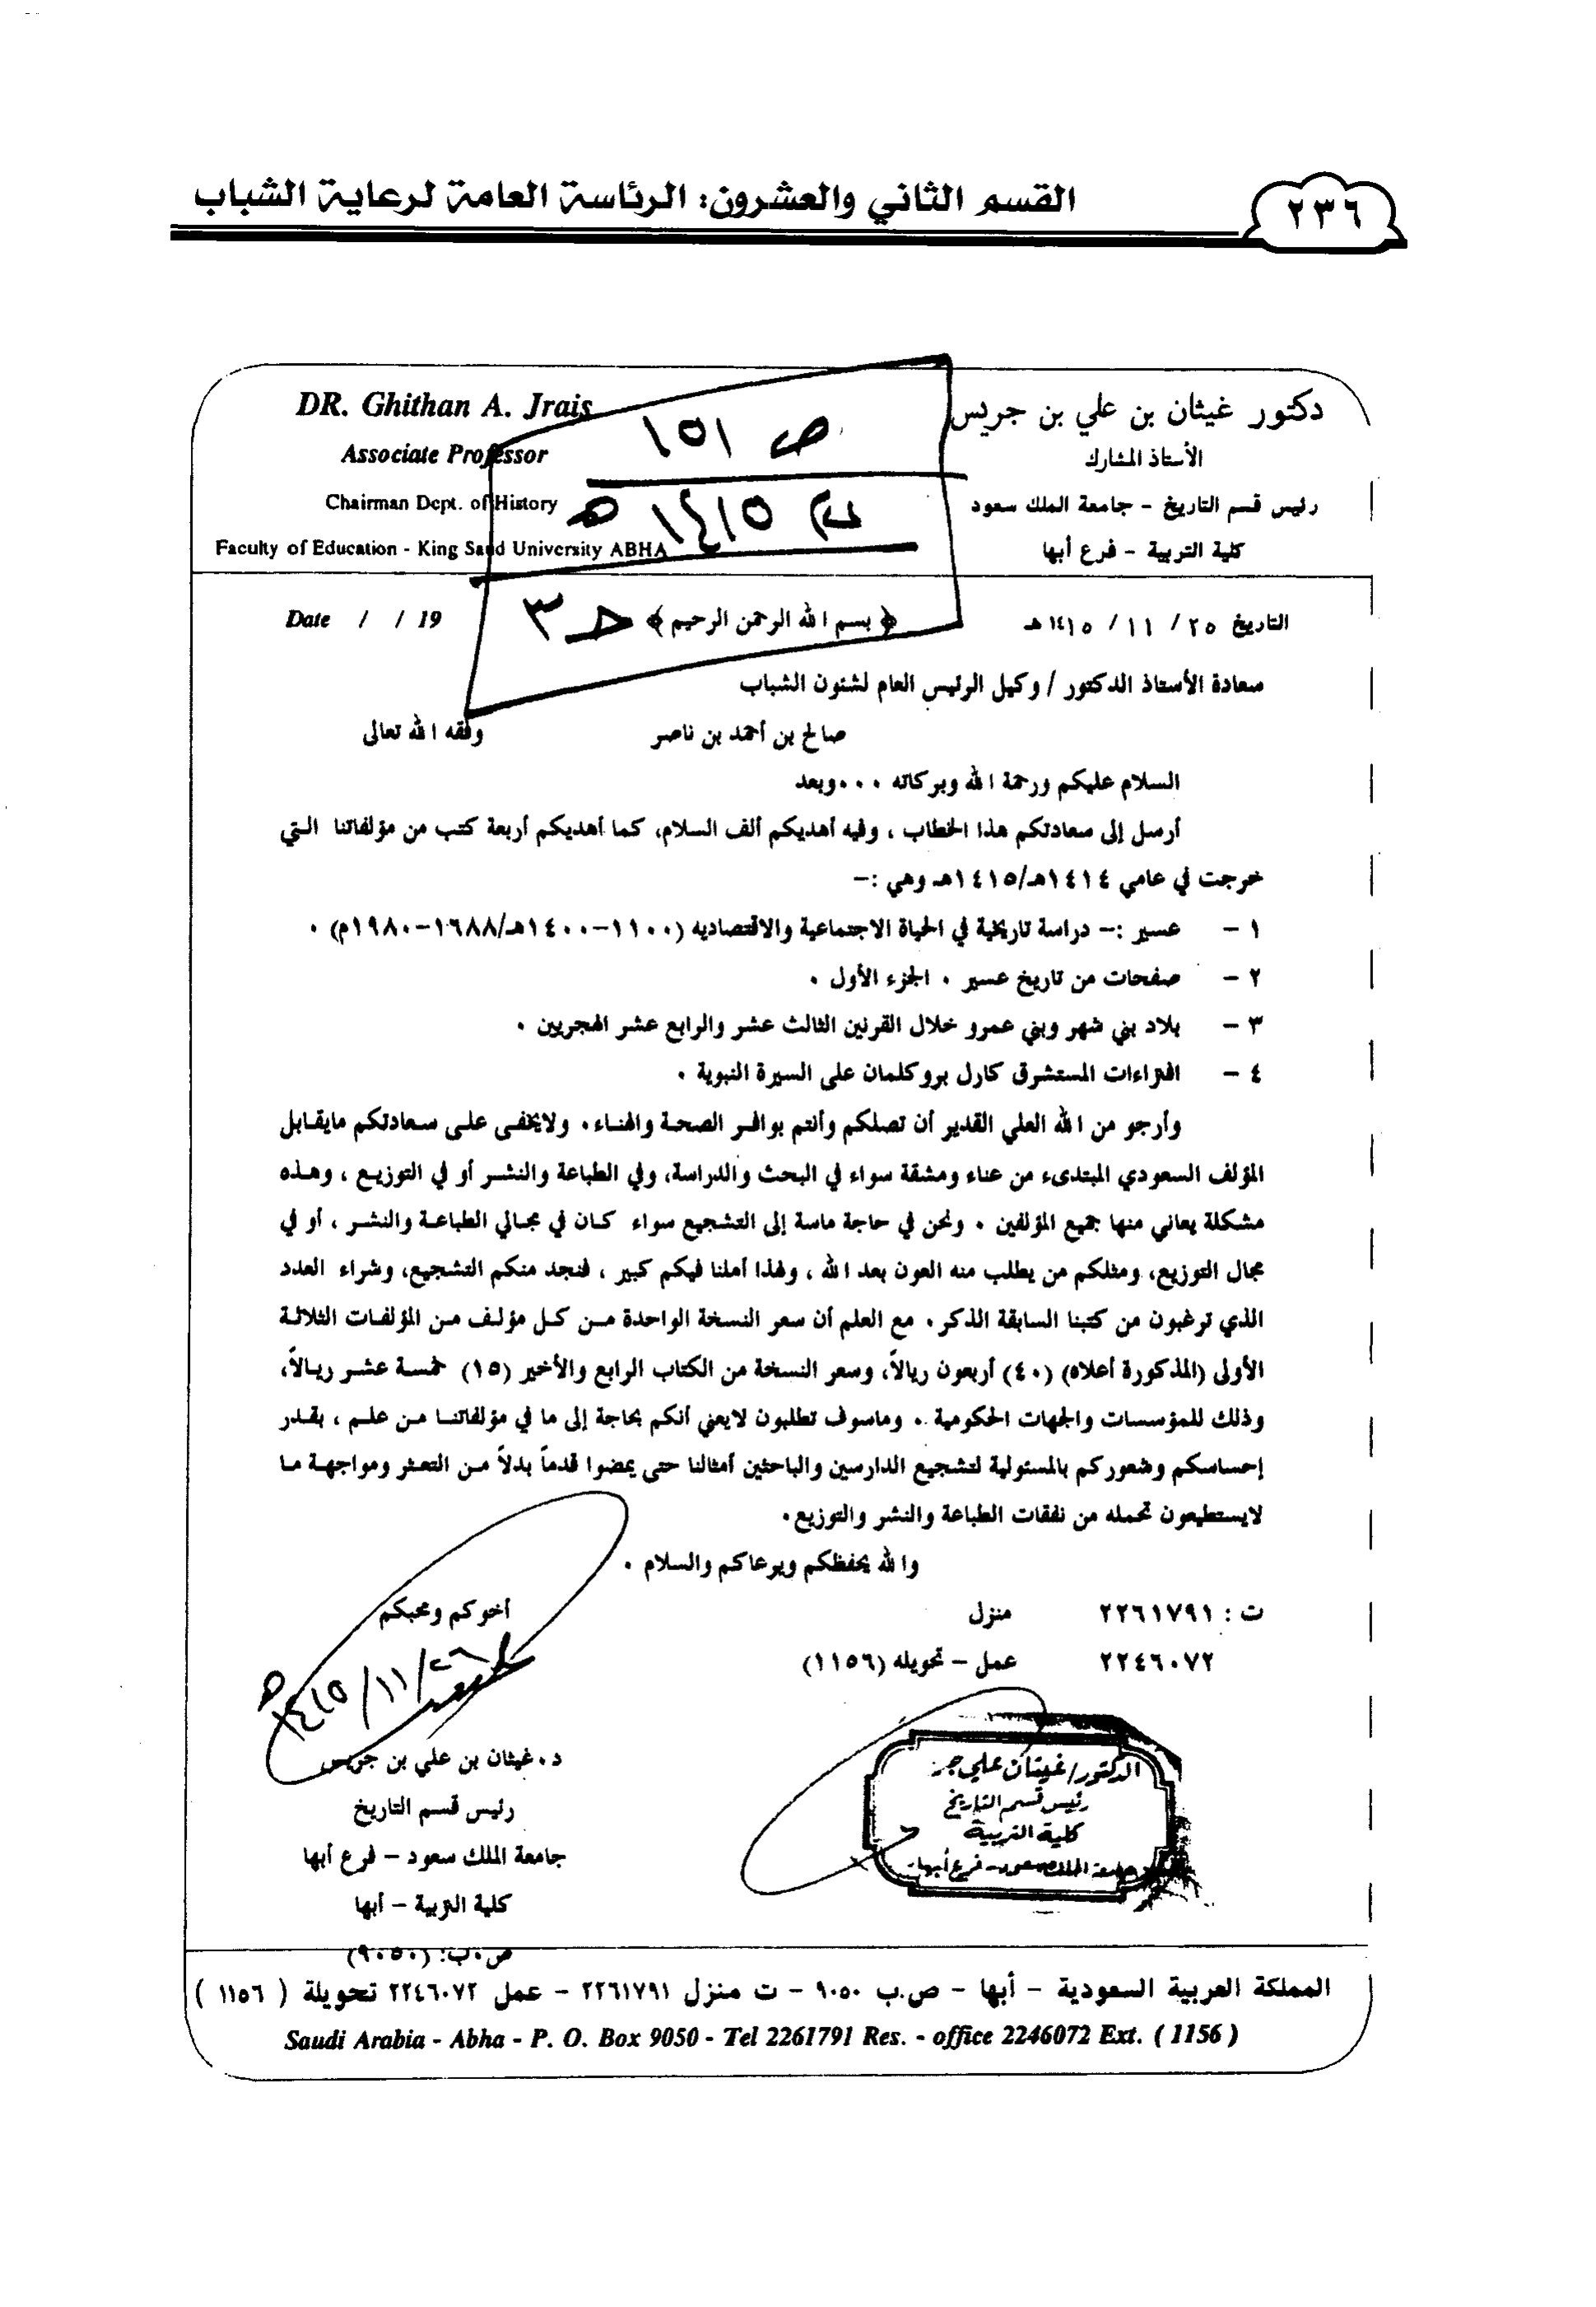 ٢٣٦
القسم الثاني والعشرون: الرئاسة العامة لرعاية الشباب
دكتور غيثان بن علي بن جريس
الأستاذ المشارك
رئيس قسم التاريخ - جامعة الملك سعود
كلية التربية - فرع أبها
DR. Ghithan A. Jrais
Associate Professor
Chairman Dept. of History
Faculty of Education - King Saud University ABHA
ص ١٥١
١٤١٥ هـ
ح٣
التاريخ ٢٥ / ١١ / ١٤١٥ هـ
﴿ بسم الله الرحمن الرحيم ﴾
Date / / 19
سعادة الأستاذ الدكتور / وكيل الرئيس العام لشئون الشباب
صالح بن أحمد بن ناصر وفقه الله تعالى
السلام عليكم ورحمة الله وبركاته ٠٠٠ وبعد
أرسل إلى سعادتكم هذا الخطاب ، وفيه أهديكم ألف السلام، كما أهديكم أربعة كتب من مؤلفاتنا التي
خرجت في عامي ١٤١٤هـ/١٤١٥هـ وهي :-
١ - عسير :- دراسة تاريخية في الحياة الاجتماعية والاقتصاديه (١١٠٠-١٤٠٠هـ/١٦٨٨-١٩٨٠م) ٠
٢ - صفحات من تاريخ عسير ٠ الجزء الأول ٠
٣ - بلاد بني شهر وبني عمرو خلال القرنين الثالث عشر والرابع عشر الهجريين ٠
٤ - افتراءات المستشرق كارل بروكلمان على السيرة النبوية ٠
وأرجو من الله العلي القدير أن تصلكم وأنتم بوافر الصحة والهناء٠ ولايخفى على سعادتكم مايقابل
المؤلف السعودي المبتدىء من عناء ومشقة سواء في البحث والدراسة، وفي الطباعة والنشر أو في التوزيع ، وهذه
مشكلة يعاني منها جميع المؤلفين ٠ ونحن في حاجة ماسة إلى التشجيع سواء كان في مجالي الطباعة والنشر ، أو في
مجال التوزيع، ومثلكم من يطلب منه العون بعد الله ، ولهذا أملنا فيكم كبير ، فنجد منكم التشجيع، وشراء العدد
الذي ترغبون من كتبنا السابقة الذكر٠ مع العلم أن سعر النسخة الواحدة من كل مؤلف من المؤلفات الثلاثة
الأولى (المذكورة أعلاه) (٤٠) أربعون ريالاً، وسعر النسخة من الكتاب الرابع والأخير (١٥) خمسة عشر ريالاً،
وذلك للمؤسسات والجهات الحكومية ٠ وماسوف تطلبون لايعني أنكم بحاجة إلى ما في مؤلفاتنا من علم ، بقدر
إحساسكم وشعوركم بالمسئولية لتشجيع الدارسين والباحثين أمثالنا حتى يمضوا قدماً بدلاً من التعثر ومواجهة ما
لايستطيعون تحمله من نفقات الطباعة والنشر والتوزيع٠
والله يحفظكم ويرعاكم والسلام ٠
ت : ٢٢٦١٧٩١ منزل
٢٢٤٦٠٧٢ عمل - تحويله (١١٥٦)
أخوكم ومحبكم
١٤١٥/١١/٢٦ هـ
د٠غيثان بن علي بن جريس
رئيس قسم التاريخ
جامعة الملك سعود - فرع أبها
كلية التربية - أبها
ص٠ب: (٩٠٥٠)
الدكتور/غيثان علي جر
رئيس قسم التاريخ
كلية التربية
جامعة الملك سعود - فرع أبها
المملكة العربية السعودية - أبها - ص.ب ٩٠٥٠ - ت منزل ٢٢٦١٧٩١ - عمل ٢٢٤٦٠٧٢ تحويلة ( ١١٥٦ )
Saudi Arabia - Abha - P. O. Box 9050 - Tel 2261791 Res. - office 2246072 Ext. ( 1156 )